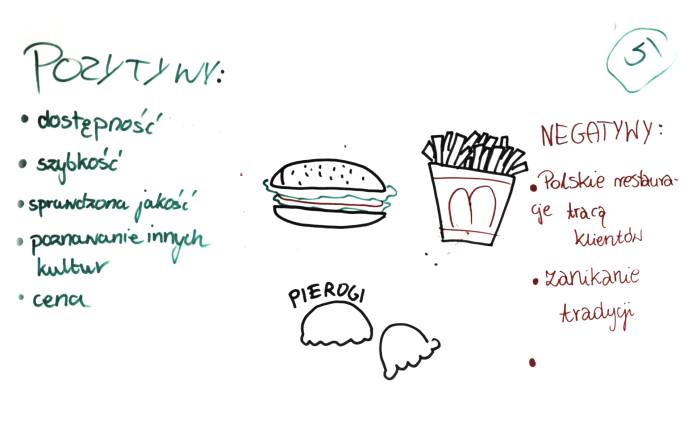 POZYTYWY:
• dostępność
• szybkość
• sprawdzona jakość
• poznawanie innych
kultur
• cena
PIEROGI
M
5
NEGATYWY:
• Polskie restaura-
cje tracą
klientów
• zanikanie
tradycji
•